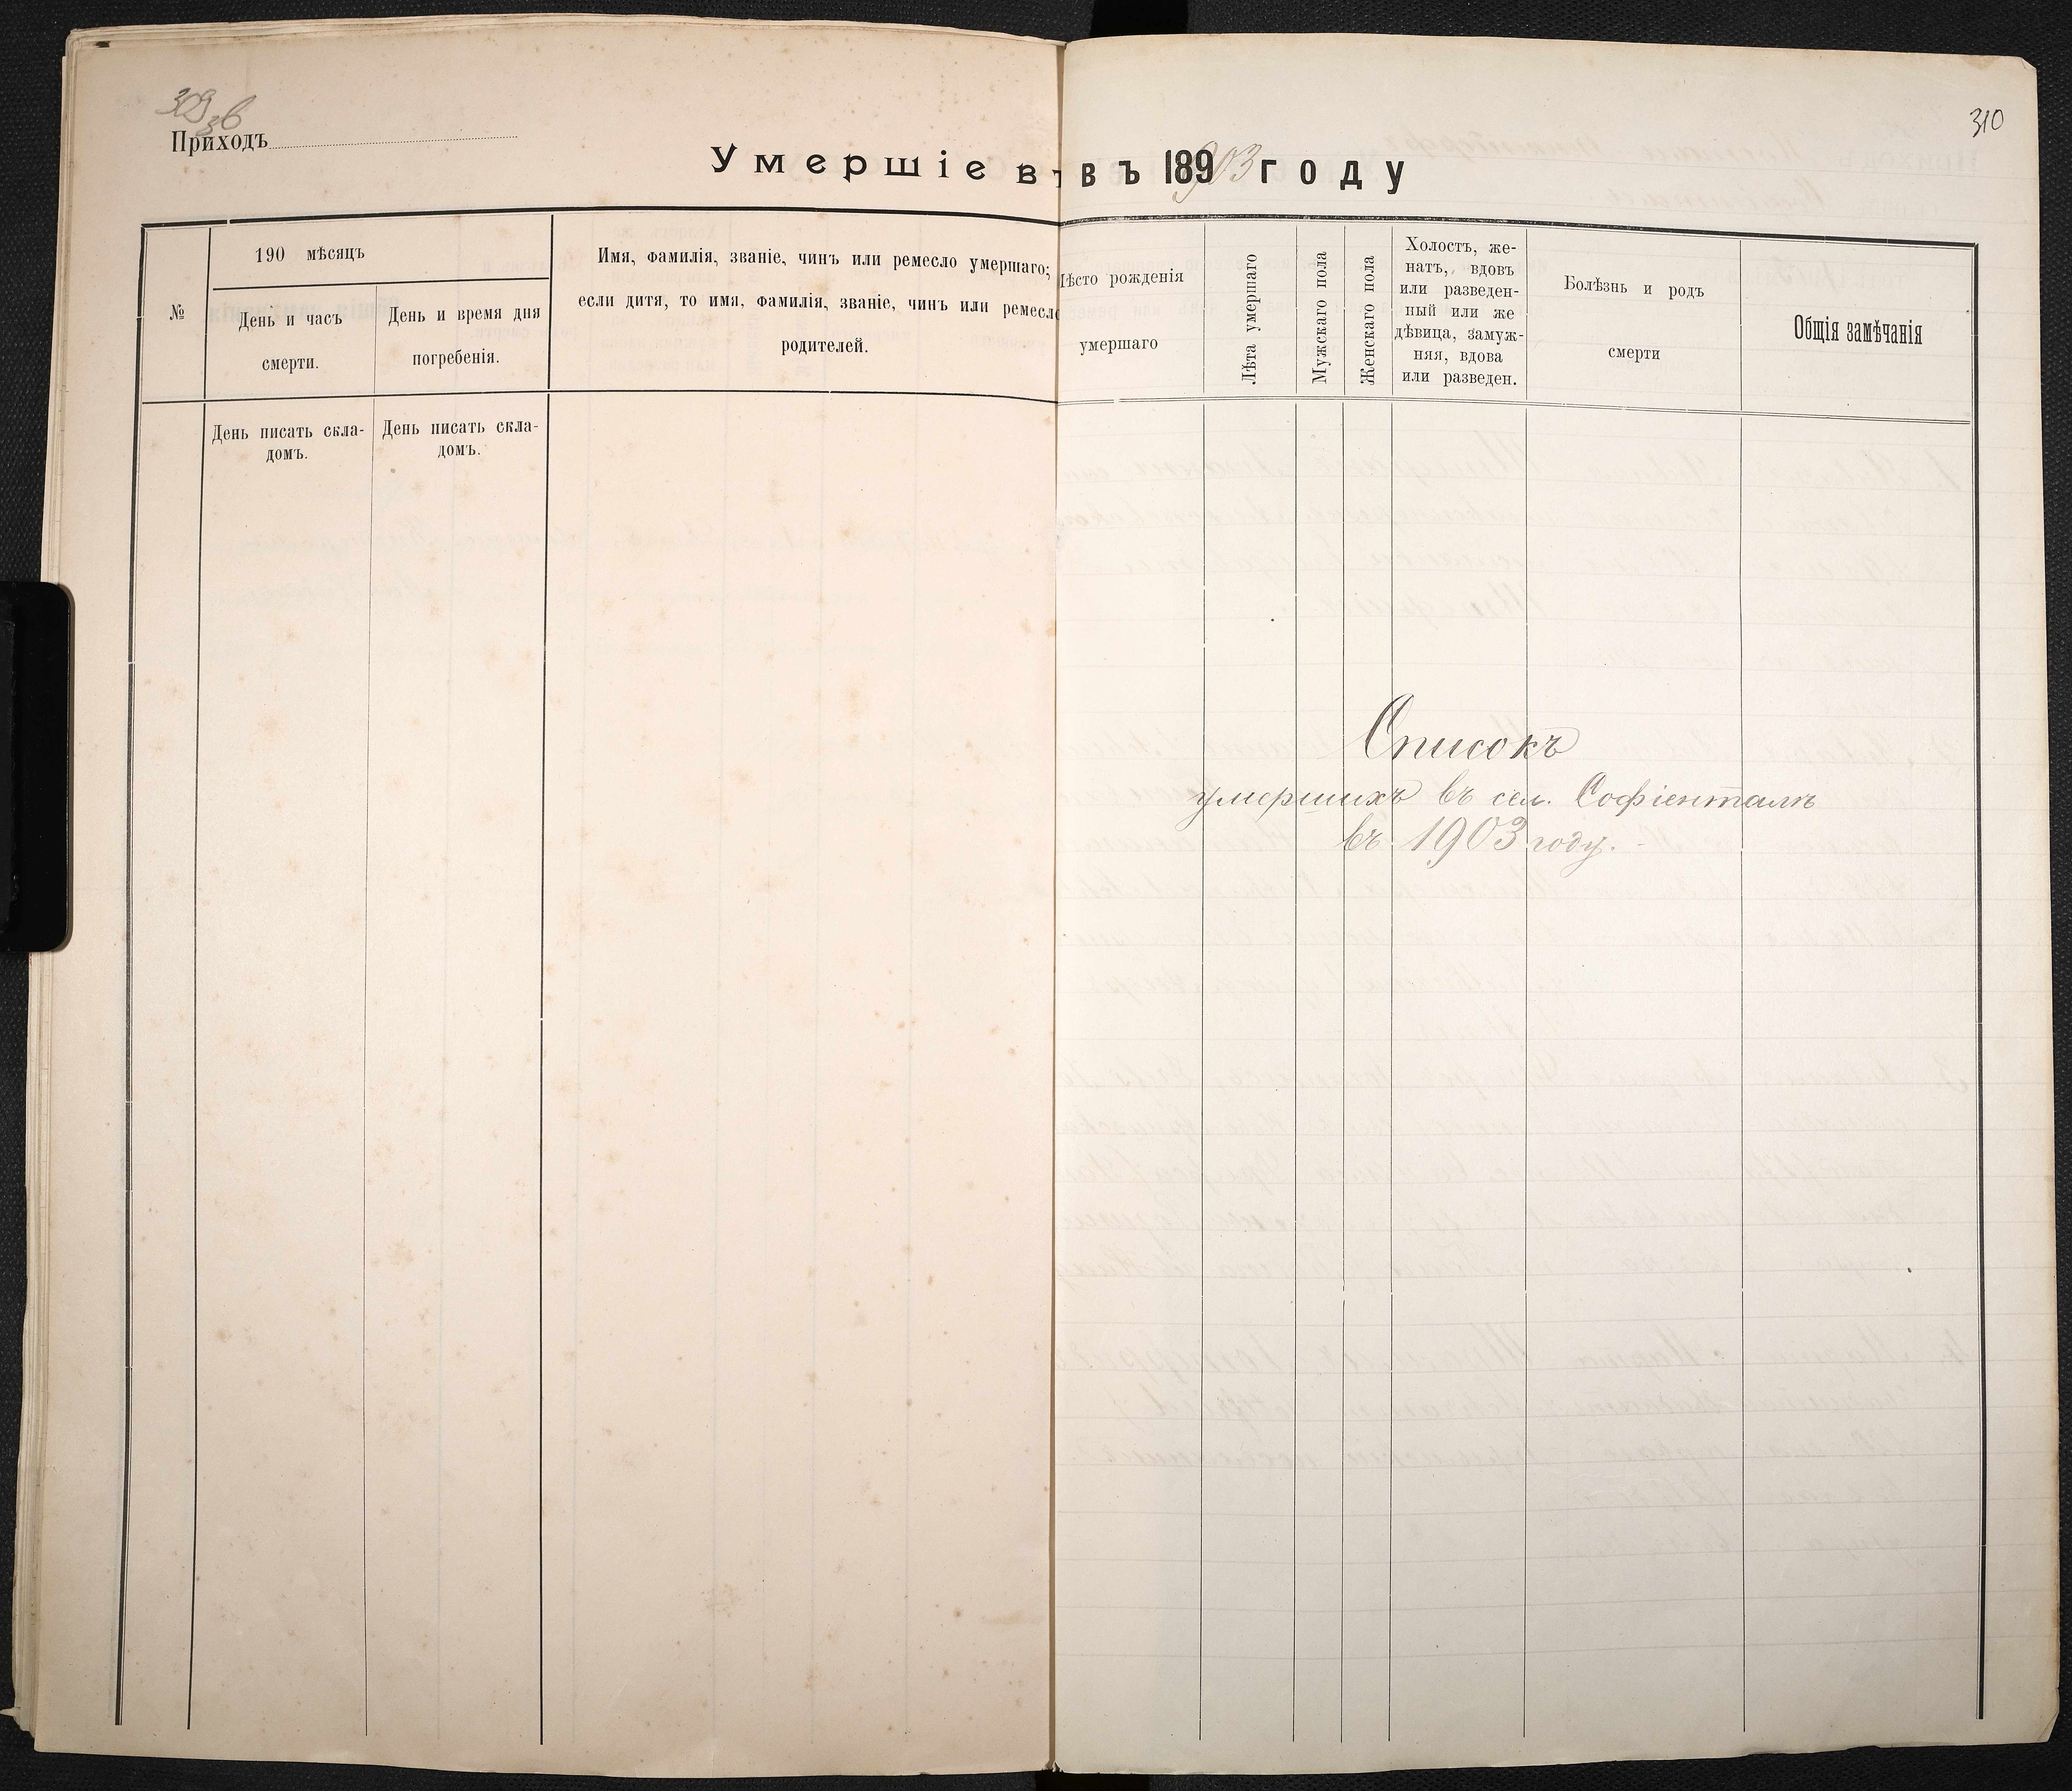 309 зв
Приходъ
Умершіе въ
№
190 мѣсяцъ
День и часъ
смерти.
День и время дня
погребенія.
Имя, фамилія, званіе, чинъ или ремесло умершаго;
если дитя, то имя, фамилія, званіе, чинъ или ремесло
родителей.
День писать скла-
домъ.
День писать скла-
домъ.
310
въ 189903 году
Мѣсто рожденія
умершаго
Лѣта умершаго
Мужскаго пола
Женскаго пола
Холостъ, же-
натъ, вдовъ
или разведен-
ный или же
дѣвица, замуж-
няя, вдова
или разведен.
Болѣзнь и родъ
смерти
Общія замѣчанія
Списокъ
умершихъ въ сел. Софіенталѣ
въ 1903 году.